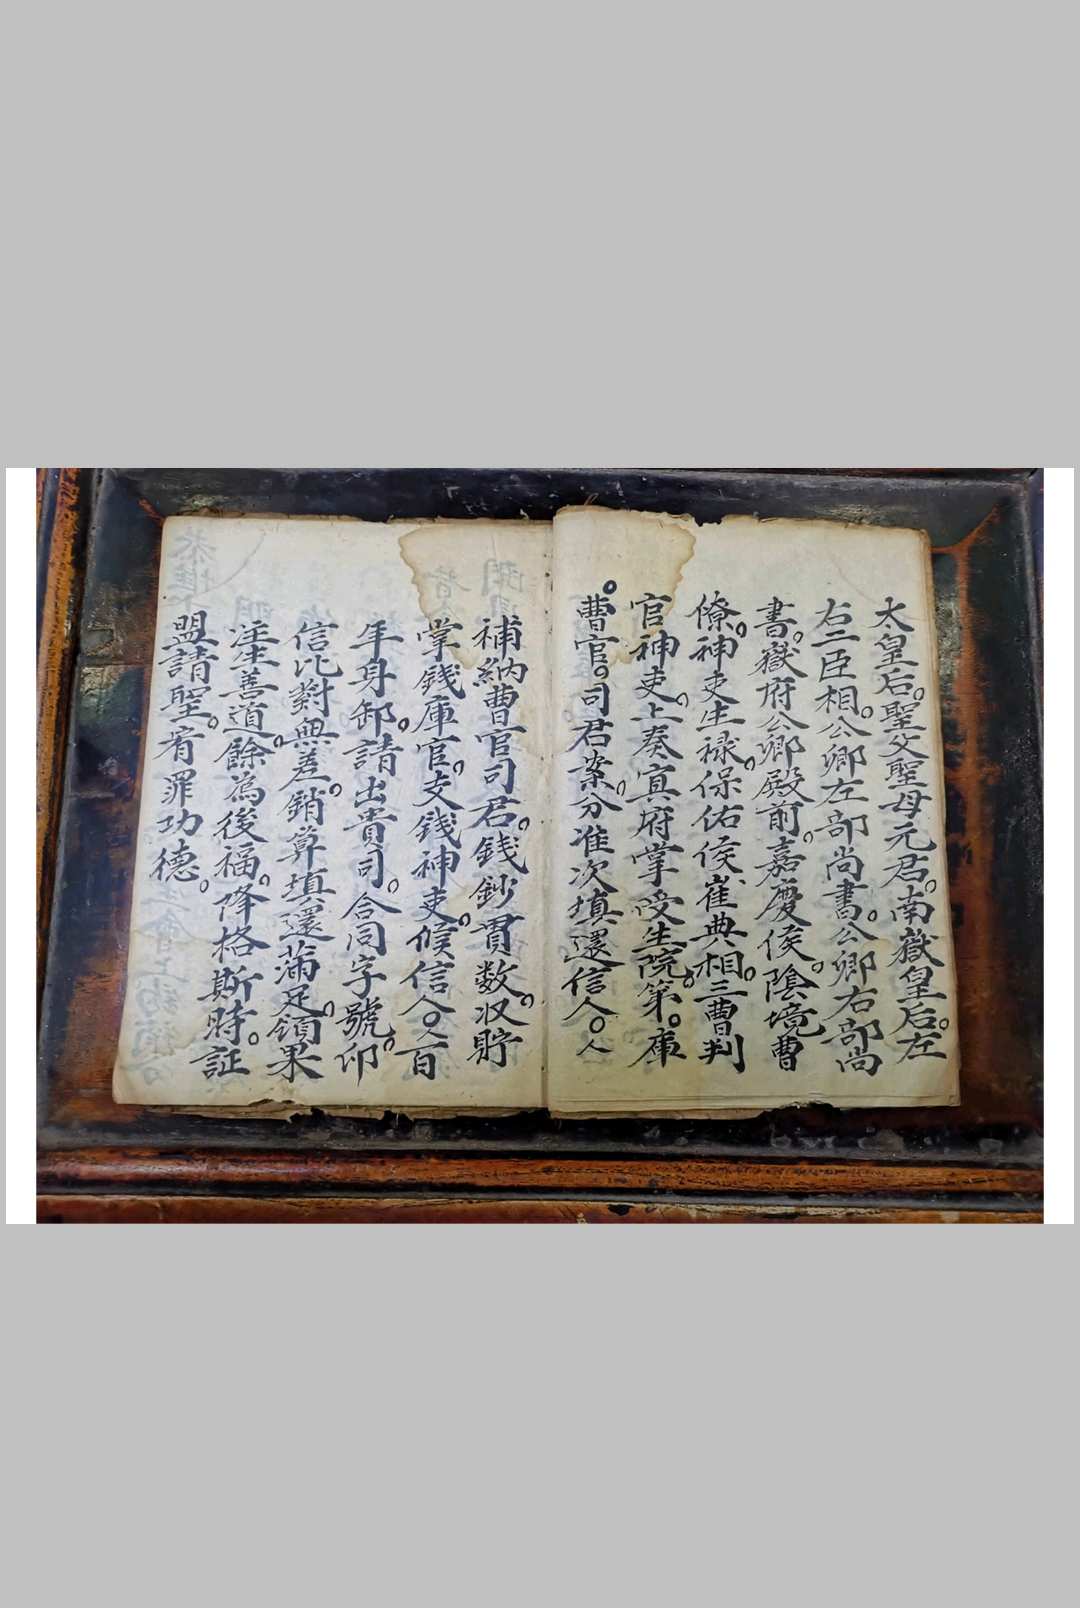 太皇后。聖父聖母元君。南嶽皇后。左
右二臣相。公卿左部尚書。公卿右部尚
書。嶽府公卿殿前。嘉慶侯。陰境曹
僚。神吏生禄。保佑侯崔典相。三曹判
官神吏。上奏冥府掌受生院。第。庫
。曹官。司君案。分准次填還信人。人
補納曹官司君。錢鈔貫数。収貯
掌錢庫官。支錢神吏。候信人。百
年身卸。請出貴司。合同字號。印
信比對無差。銷算填還滿足。領果
注生善道。餘為後福。降格斯時。証
盟請聖。宥罪功德。